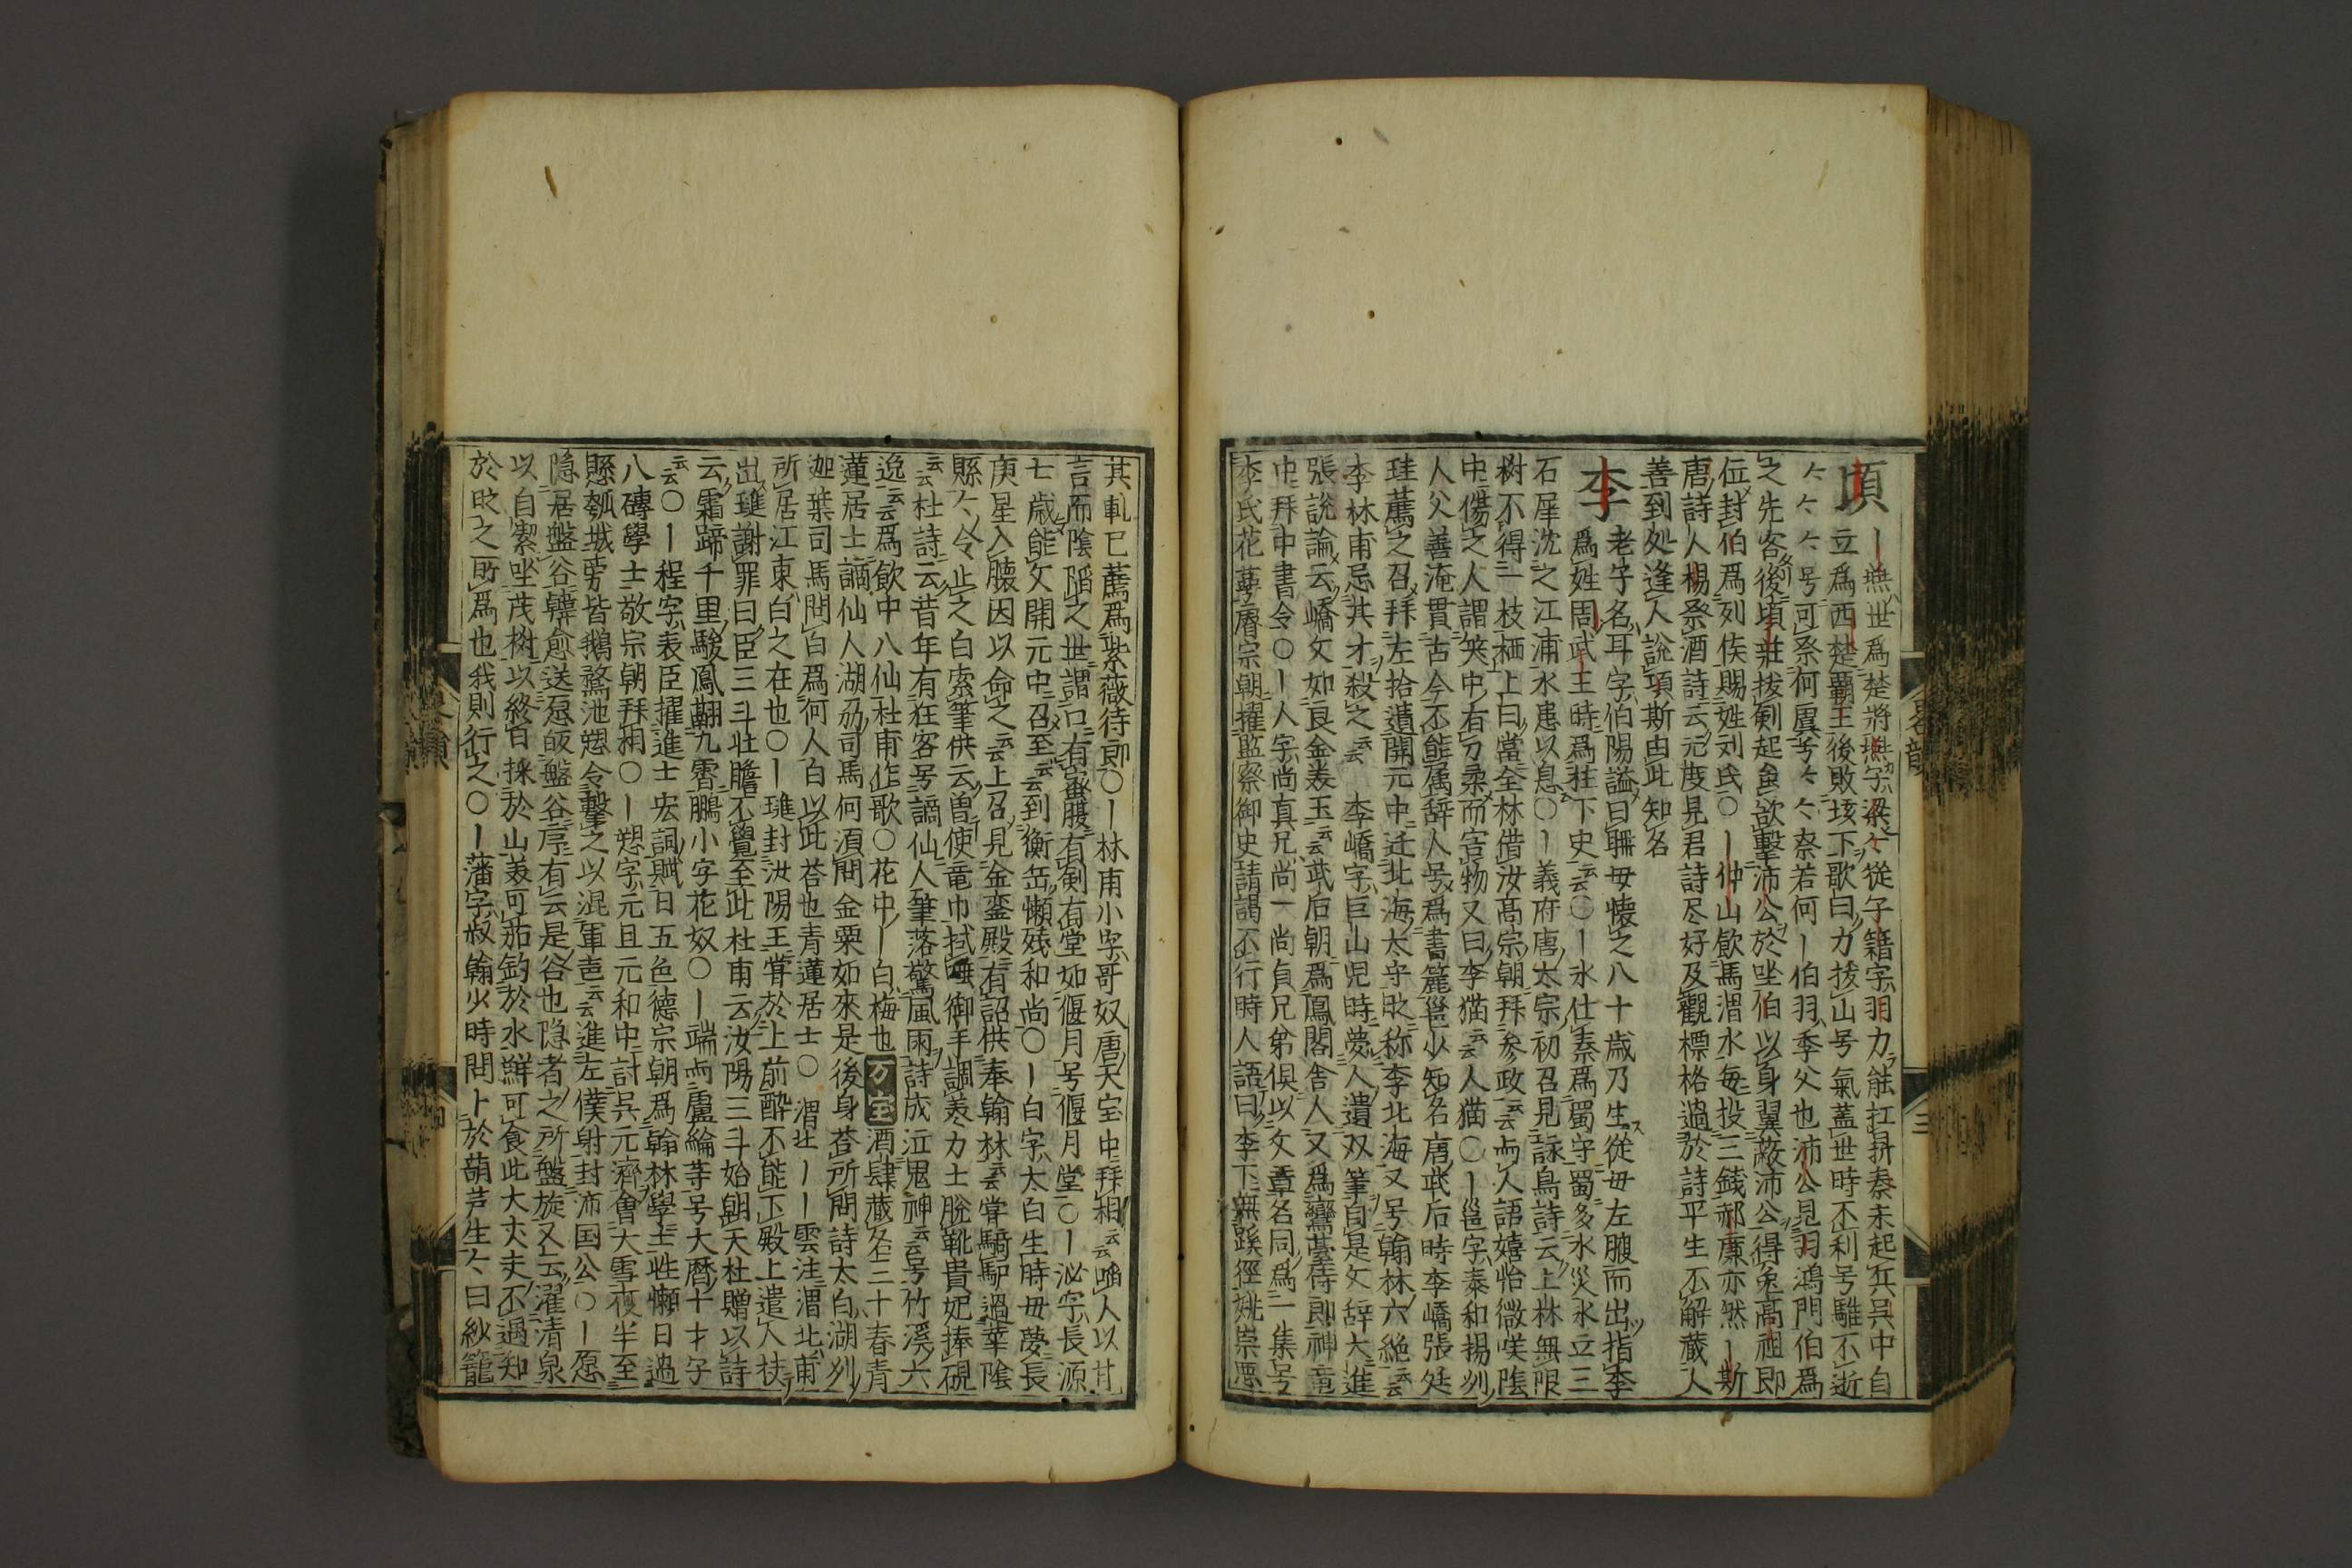 項 ｜燕世爲楚將燕字梁々從子籍字羽力能扛鼎秦末起兵呉中自
立爲西楚覇王後敗垓下歌曰力抜山兮氣蓋世時不利兮騅不逝
々々々兮可奈何虞兮々々奈若何｜伯羽季父也沛公見羽鴻門伯爲
之先容後項莊拔剣起舞欲擊沛公於坐伯以身翼蔽沛公得免髙祖即
位封伯爲列侯賜姓刘氏〇｜仲山飲馬渭水毎投三錢郝廉亦然｜斯
唐詩人楊祭酒詩云元度見君詩尽好及觀標格過於詩平生不解蔵人
善到処逢人說項斯由此知名
李 老子名耳字伯陽謚曰聃母懐之八十歳乃生從母左腋而出指李
爲姓周武王時爲柱下史云云〇｜氷仕秦爲蜀守蜀多水災氷立三
石犀沈之江浦水患以息〇｜義府唐太宗初召見詠鳥詩云上林無限
樹不得一枝栖上曰當全林借汝髙宗朝拜参政云云与人語嬉怡微咲陰
中傷之人謂笑中有刀柔而害物又曰李猫云云人猫〇｜邕字泰和揚刕
人父善淹貫古今不能属辞人号爲書簏邕少知名唐武后時李嶠張廷
珪薦之召拜左拾遺開元中迁北海太守時称李北海又号翰林六絶云云
李林甫忌其才殺之云云 李嶠字巨山児時夢人遺双筆自是文辞大進
張說論云嶠文如良金羙玉云云武后朝爲鳳閣舎人又爲鸞䑓侍郎神竜
中拜中書令〇｜人字尚真兄尚一尚貞兄弟倶以文章名同爲一集号
李氏花萼睿宗朝擢監察御史請謁不行時人語曰李下無蹊徑姚崇悪
其軋已薦爲紫薇侍郎〇｜林甫小字哥奴唐天宝中拜相云云啗人以甘
言而陰陷之世謂口有蜜腹有剣有堂如偃月号偃月堂〇｜泌字長源
七歳能文開元中召至云云到衡岳懶残和尚〇｜白字太白生時母夢長
庚星入懐因以命之云云上召見金銮殿有詔供奉翰林云云甞騎馿過華陰
縣々令止之白索筆供云曽使竜巾拭唾御手調羙力士脫靴貴妃捧硯
云云杜詩云昔年有狂客号謫仙人筆落驚風雨詩成泣鬼神云云号竹溪六
逸云云爲飲中八仙杜甫作歌〇花中｜白梅也万宝酒肆蔵名三十春青
蓮居士謫仙人湖刕司馬何湏問金粟如來是後身荅所問詩太白湖刕
迦葉司馬問白爲何人白以此荅也青蓮居士〇 渭北｜｜雲注渭北甫
所居江東白之在也〇｜璡封汝陽王甞於上前酔不能下殿上遣人扶
出璡謝罪曰臣三斗壮膽不覺至此杜甫云汝陽三斗始朝天杜贈以詩
云霜蹄千里駿鳳翮九霄鵬小字花奴〇｜端与盧綸等号大暦十才子
云云〇｜程字表臣擢進士宏詞賦日五色德宗朝爲翰林學士性懶日過
八磚學士敬宗朝拜相〇｜愬字元且元和中討呉元濟會大雪夜半至
懸瓠城旁皆鵝鶩池愬令擊之以混軍声云云進左僕射封沛国公〇｜愿
隐居盤谷韓愈送愿皈盤谷序有云是谷也隐者之所盤旋又云濯清泉
以自潔坐茂樹以終日採於山羙可茹釣於水鮮可食此大丈夫不過知
於时之所爲也我則行之〇｜藩字叔翰少時問卜於葫芦生々曰紗籠